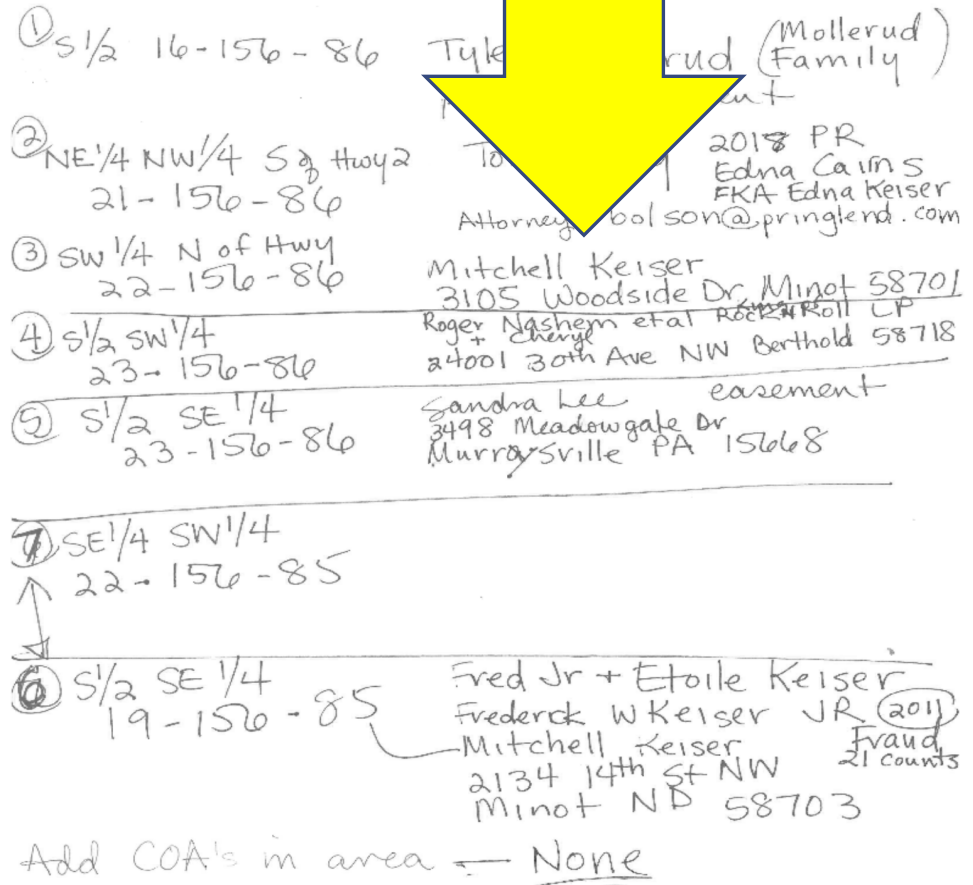 ① S 1/2 16-156-86 Tyle rud (Mollerud Family)
② NE 1/4 NW 1/4 S of Hwy 2
21-156-86
To
2018 PR
Edna Cairns
FKA Edna Keiser
Attorney bolson@pringlend.com
③ SW 1/4 N of Hwy
22-156-86
Mitchell Keiser
3105 Woodside Dr, Minot 58701
④ S 1/2 SW 1/4
23-156-86
Roger Nashem et al Rock N Roll LP
+ Cheryl
24001 30th Ave NW Berthold 58718
⑤ S 1/2 SE 1/4
23-156-86
Sandra Lee easement
3498 Meadowgate Dr
Murraysville PA 15668
⑦ SE 1/4 SW 1/4
22-156-85
⑥ S 1/2 SE 1/4
19-156-85
Fred Jr + Etoile Keiser
Frederck W Keiser JR (2011)
Fraud
21 counts
Mitchell Keiser
2134 14th St NW
Minot ND 58703
Add COA's in area — None